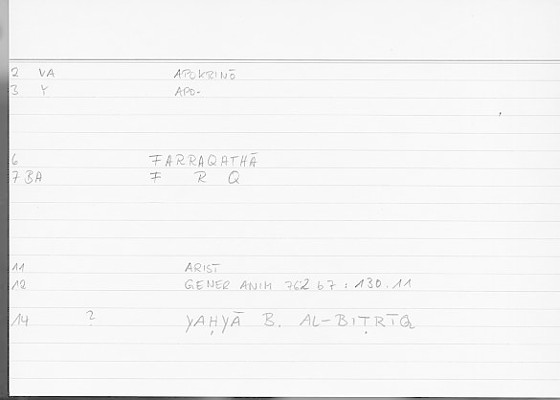 2 VA APOKRINŌ
3 Y APO-
6 FARRAQATHĀ
7 BA F R Q
11 ARIST
12 GENER ANIM 762 b7 : 130.11
14 ? YAḤYĀ B. AL-BIṬRĪQ